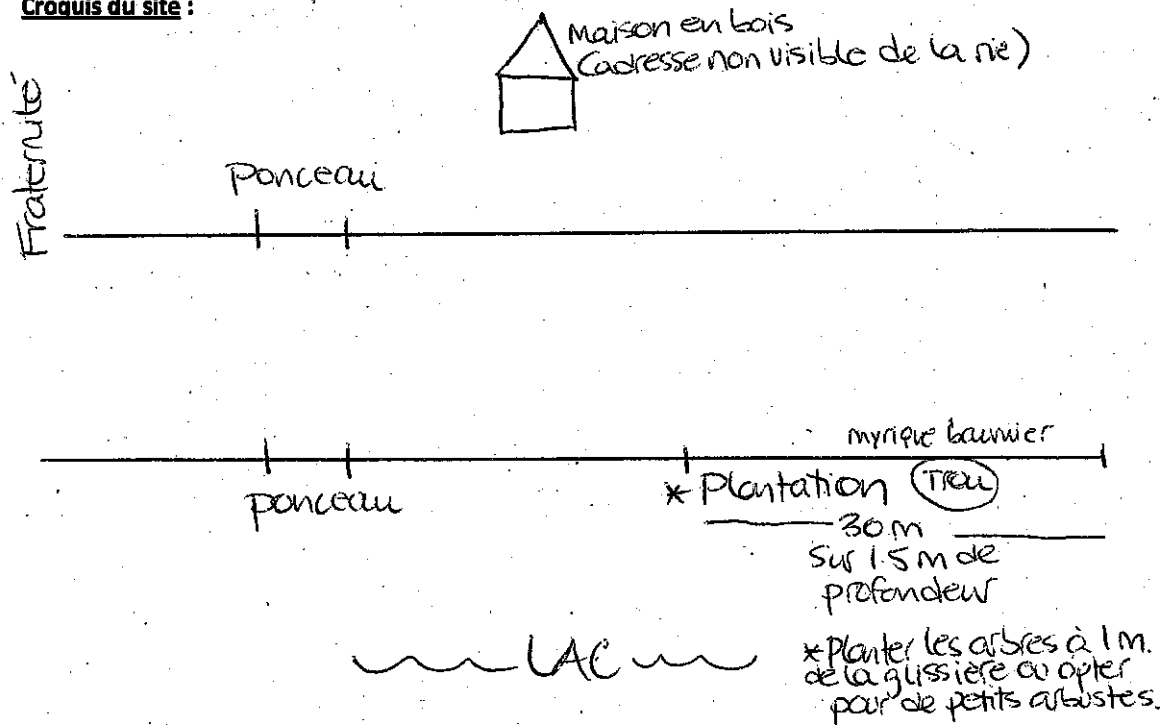 Croquis du site :
Maison en bois
(adresse non visible de la rie)
Fraternité
Ponceau
myrique baumier
ponceau
* Plantation Trou
30 m
Sur 1.5 m de
profondeur
LAC
* Planter les arbres à 1 m.
de la glissière ou opter
pour de petits arbustes.